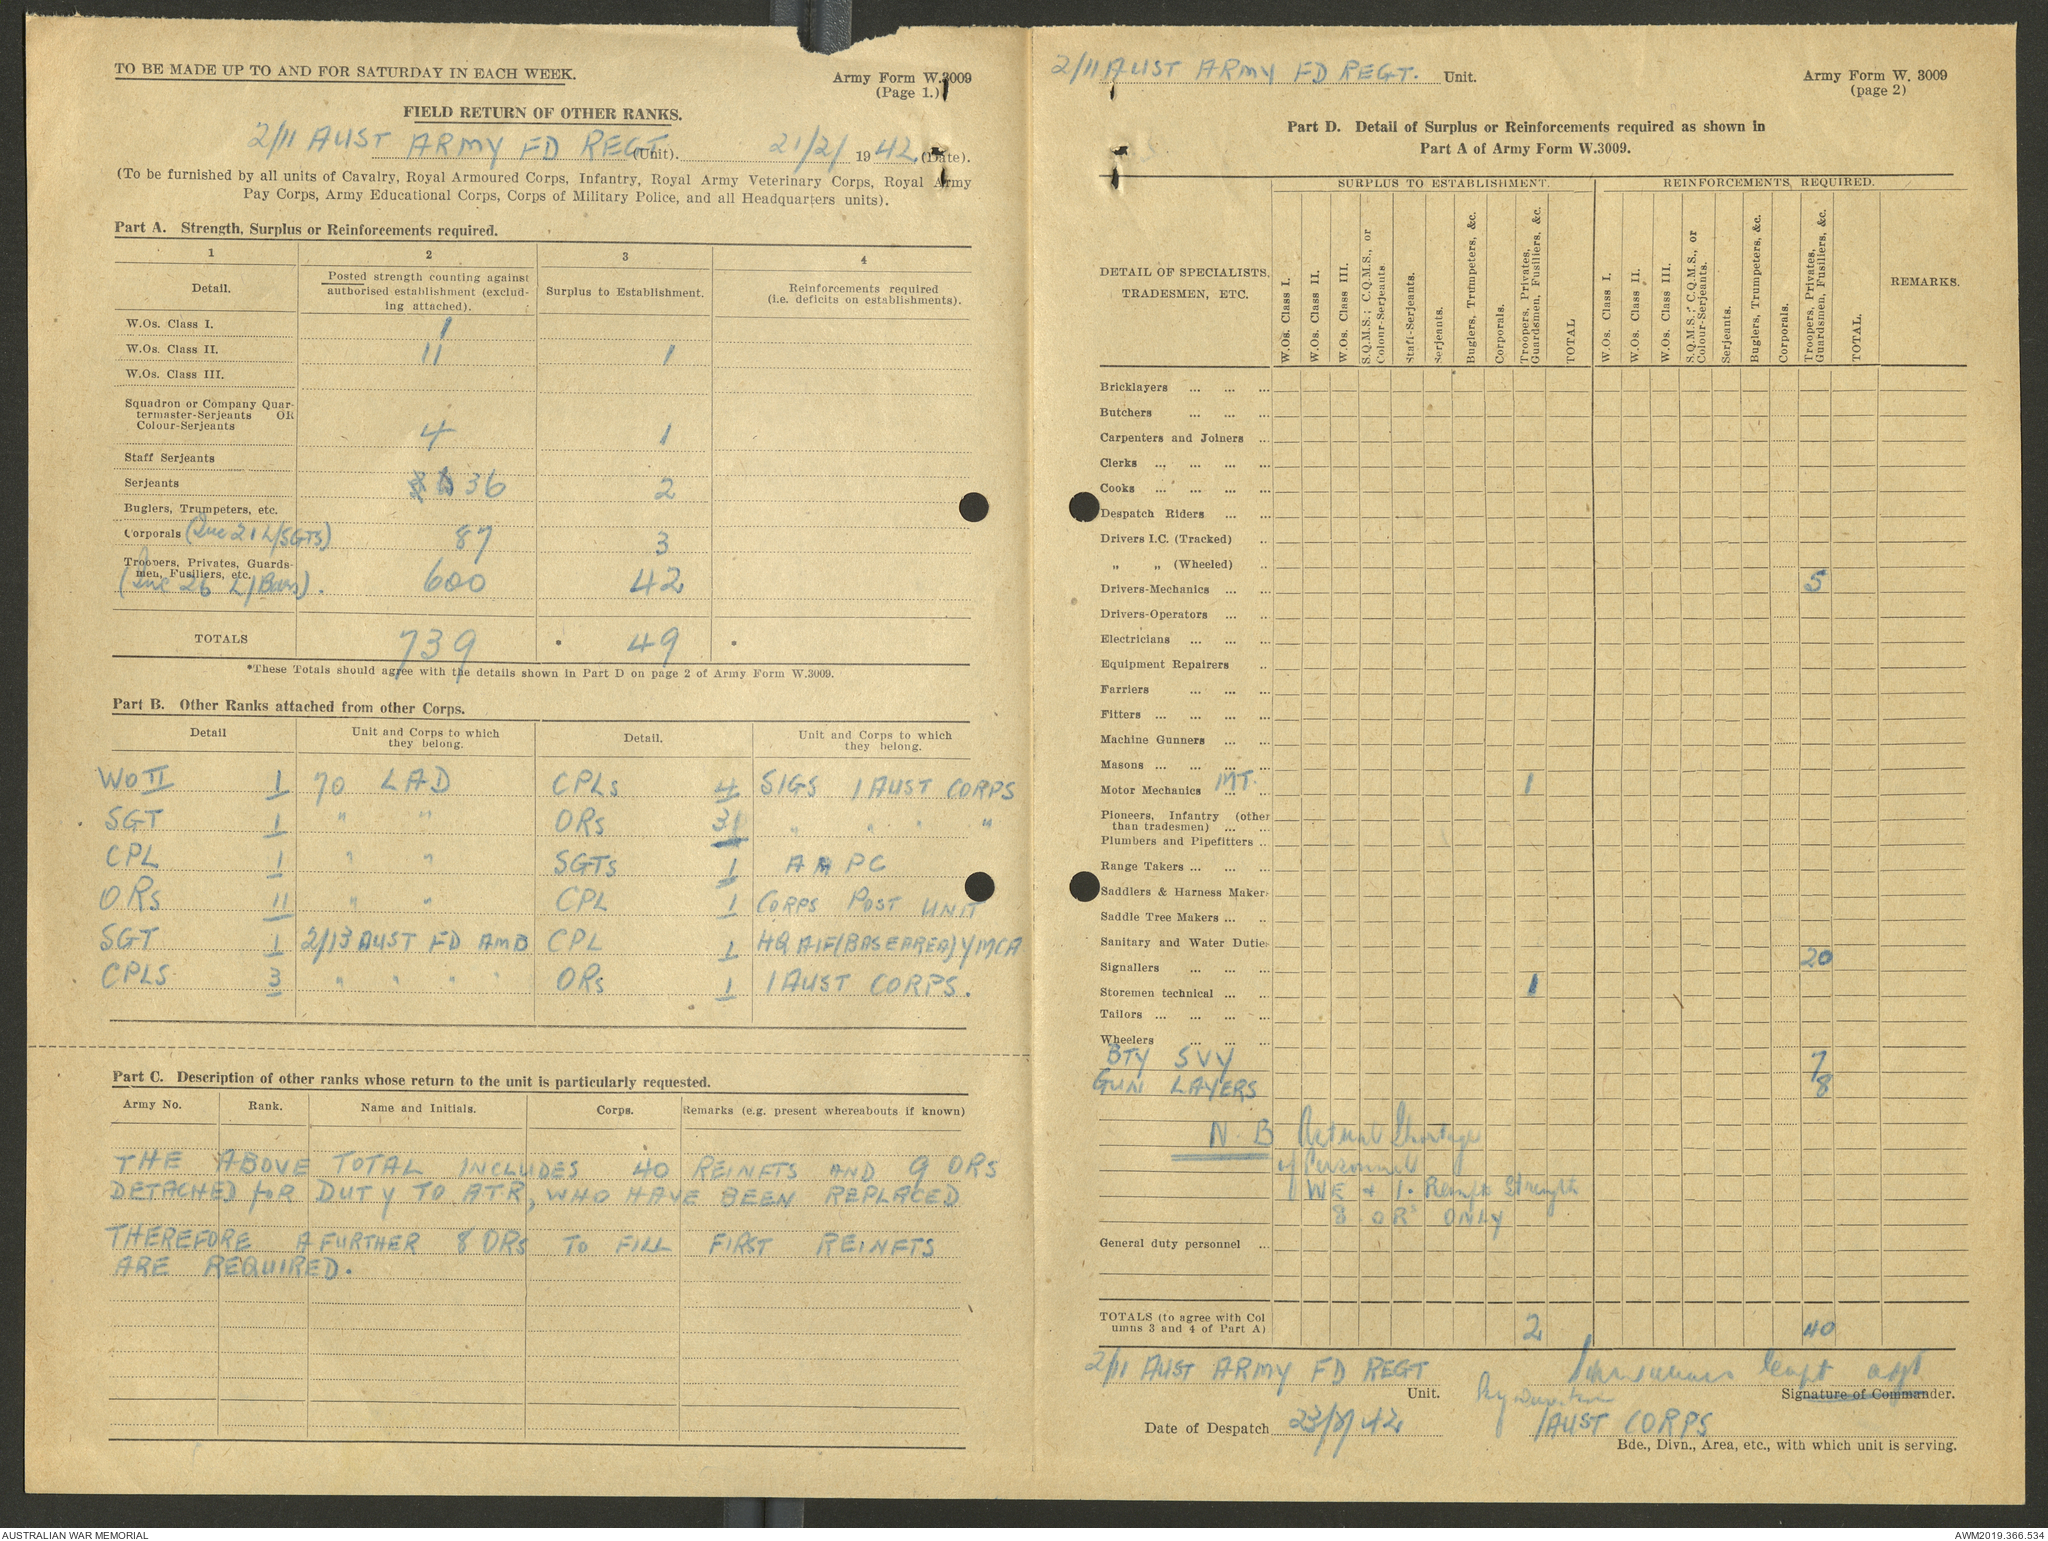 TO BE MADE UP TO AND FOR SATURDAY IN EACH WEEK.
Army Form W.3009
(Page 1.)
FIELD RETURN OF OTHER RANKS.
2/11 AUST ARMY FD REGT (Unit). 21/2/ 1942. (Date).
(To be furnished by all units of Cavalry, Royal Armoured Corps, Infantry, Royal Army Veterinary Corps, Royal Army
Pay Corps, Army Educational Corps, Corps of Military Police, and all Headquarters units).
Part A. Strength, Surplus or Reinforcements required.
1 2 3 4
Detail. Posted strength counting against authorised establishment (excluding attached). Surplus to Establishment. Reinforcements required (i.e. deficits on establishments).
W.Os. Class I. 1
W.Os. Class II. 11 1
W.Os. Class III.
Squadron or Company Quar-
termaster-Serjeants OR
Colour-Serjeants 4 1
Staff Serjeants
Serjeants 36 2
Buglers, Trumpeters, etc.
Corporals (Inc 21 L/SGTS) 87 3
Troopers, Privates, Guards-
men, Fusiliers, etc. 600 42
(Inc 26 L/Bdrs).
TOTALS 739 49
*These Totals should agree with the details shown in Part D on page 2 of Army Form W.3009.
Part B. Other Ranks attached from other Corps.
Detail Unit and Corps to which they belong. Detail. Unit and Corps to which they belong.
WO II 1 70 LAD CPLs 4 SIGS 1 AUST CORPS
SGT 1 " " ORs 31 " " " "
CPL 1 " " SGTS 1 AAPC
ORs 11 " " CPL 1 CORPS POST UNIT
SGT 1 2/13 AUST FD AMB CPL 1 HQ AIF (BASE AREA) YMCA
CPLS 3 " " " " ORs 1 1 AUST CORPS.
Part C. Description of other ranks whose return to the unit is particularly requested.
Army No. Rank. Name and Initials. Corps. Remarks (e.g. present whereabouts if known)
THE ABOVE TOTAL INCLUDES 40 REINFTS AND 9 ORS
DETACHED for DUTY TO ATR, WHO HAVE BEEN REPLACED
THEREFORE A FURTHER 8 ORs TO FILL FIRST REINFTS
ARE REQUIRED.
2/11 AUST ARMY FD REGT. Unit.
Army Form W. 3009
(page 2)
Part D. Detail of Surplus or Reinforcements required as shown in
Part A of Army Form W.3009.
SURPLUS TO ESTABLISHMENT. REINFORCEMENTS REQUIRED.
DETAIL OF SPECIALISTS, TRADESMEN, ETC.
W.Os. Class I.
W.Os. Class II.
W.Os. Class III.
S.Q.M.S.; C.Q.M.S., or Colour-Serjeants
Staff-Serjeants.
Serjeants.
Buglers, Trumpeters, &c.
Corporals.
Troopers, Privates, Guardsmen, Fusiliers, &c.
TOTAL
W.Os. Class I.
W.Os. Class II.
W.Os. Class III.
S.Q.M.S.; C.Q.M.S., or Colour-Serjeants.
Serjeants.
Buglers, Trumpeters, &c.
Corporals.
Troopers, Privates, Guardsmen, Fusiliers, &c.
TOTAL.
REMARKS.
Bricklayers ... ... ...
Butchers ... ... ...
Carpenters and Joiners ...
Clerks ... ... ... ...
Cooks ... ... ... ...
Despatch Riders ... ...
Drivers I.C. (Tracked) ..
" " (Wheeled) ..
Drivers-Mechanics ... ... 5
Drivers-Operators ... ...
Electricians ... ... ...
Equipment Repairers ..
Farriers ... ... ...
Fitters ... ... ... ...
Machine Gunners ... ...
Masons ... ... ... ...
Motor Mechanics MT. 1
Pioneers, Infantry (other
than tradesmen) ... ...
Plumbers and Pipefitters ..
Range Takers ... ... ...
Saddlers & Harness Maker
Saddle Tree Makers ... ..
Sanitary and Water Dutie
Signallers ... ... ... 20
Storemen technical ... ... 1
Tailors ... ... ... ...
Wheelers ... ... ...
BTY SVY 7
GUN LAYERS 8
N.B Actual Shortage
of Personnel
WE + 1. Reinfts Strength
8 ORs ONLY
General duty personnel ...
TOTALS (to agree with Col
umns 3 and 4 of Part A) 2 40
2/11 AUST ARMY FD REGT
Unit.
Capt
Signature of Commander.
Date of Despatch 23/2/42
1 AUST CORPS
Bde., Divn., Area, etc., with which unit is serving.
AUSTRALIAN WAR MEMORIAL
AWM2019.366.534